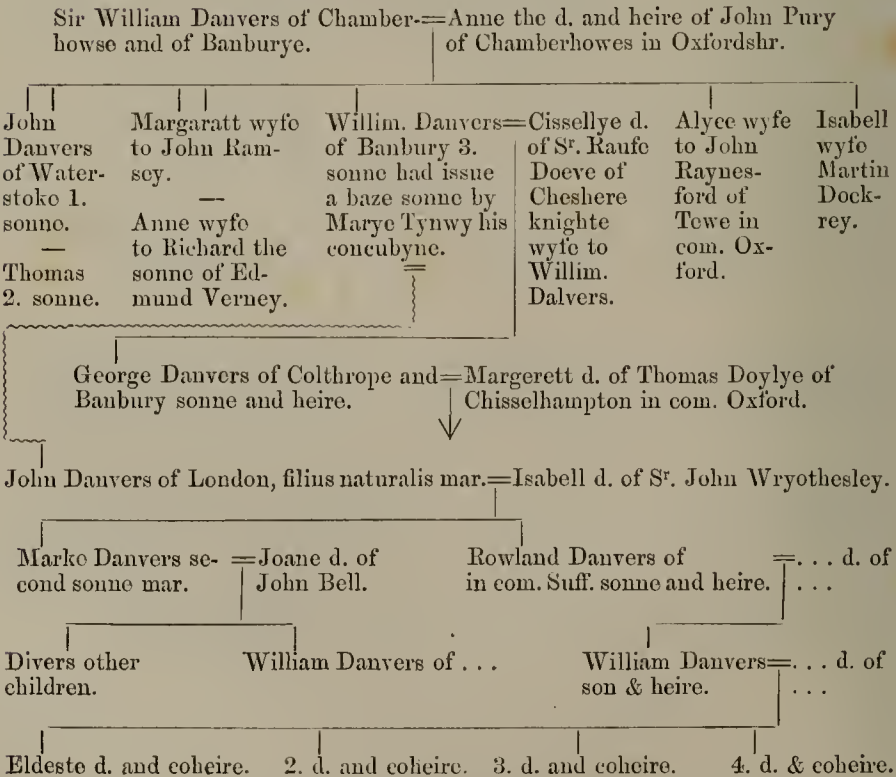 Sir William Danvers of Chamber-=Anne the d. and heire of John Pury
howse and of Banburye.
of Chamberhowes in Oxfordshr.
John
Danvers
of Water-
stoke 1.
sonne.
—
Thomas
2. sonne.
Margaratt wyfe
to John Ram-
sey.
—
Anne wyfe
to Richard the
sonne of Ed-
mund Verney.
Willim. Danvers=
of Banbury 3.
sonne had issue
a baze sonne by
Marye Tynwy his
concubyne.
=
Cissellye d.
of Sr. Raufe
Doeve of
Cheshere
knighte
wyfe to
Willim.
Dalvers.
Alyce wyfe
to John
Raynes-
ford of
Tewe in
com. Ox-
ford.
Isabell
wyfe
Martin
Dock-
rey.
George Danvers of Colthrope and=Margerett d. of Thomas Doylye of
Banbury sonne and heire.
Chisselhampton in com. Oxford.
John Danvers of London, filius naturalis mar.=Isabell d. of Sr. John Wryothesley.
Marke Danvers se-
cond sonne mar.
=Joane d. of
John Bell.
Rowland Danvers of
in com. Suff. sonne and heire.
=. . . d. of
. . .
Divers other
children.
William Danvers of . . .
William Danvers=. . . d. of
son & heire.
. . .
Eldeste d. and coheire. 2. d. and coheire. 3. d. and coheire. 4. d. & coheire.